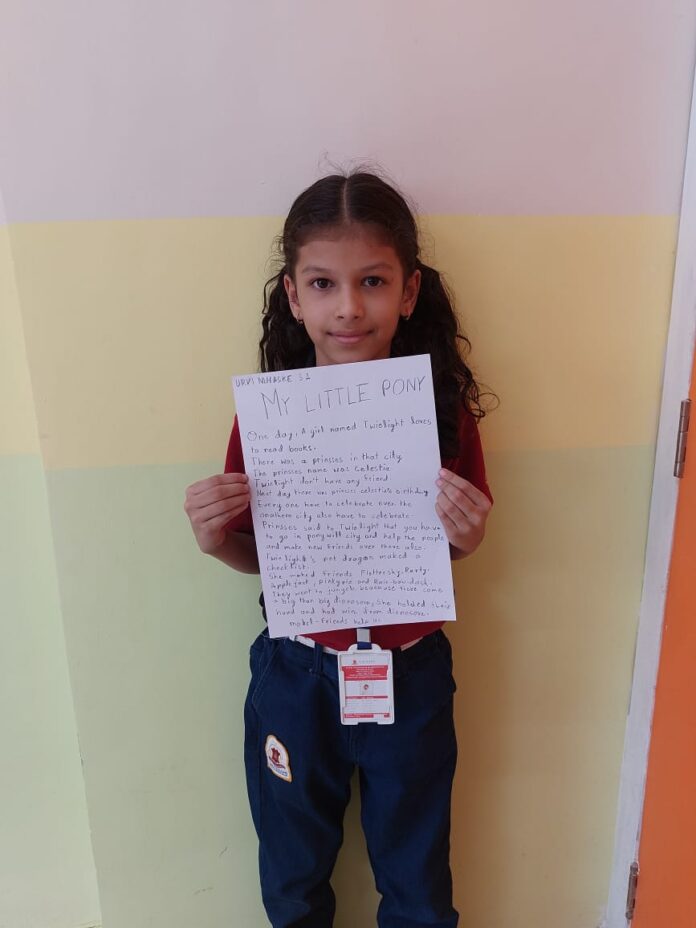 URVI MHASKE 3I
MY LITTLE PONY
One day, A girl named Twielight loves
to read books.
There was a prinsses in that city
The prinsses name was Celestia
Twielight don't have any friend
Next day there was princess celestia's birthday
Every one have to celebrate over the
anathere city also have to celebrate.
Prinsses said to Twielight that you have
to go in ponywill city and help the people
and make new friends over there also.
Twielight's pet dragon maked a
checklist.
She maked friends Fluttershy, Rarty,
Apple Jast, pinkypie and Rain bow dash.
They went to jungel beacause there come
a big than big dionosore, She holded their
hand and had win from dionosore.
moral - Friends help us